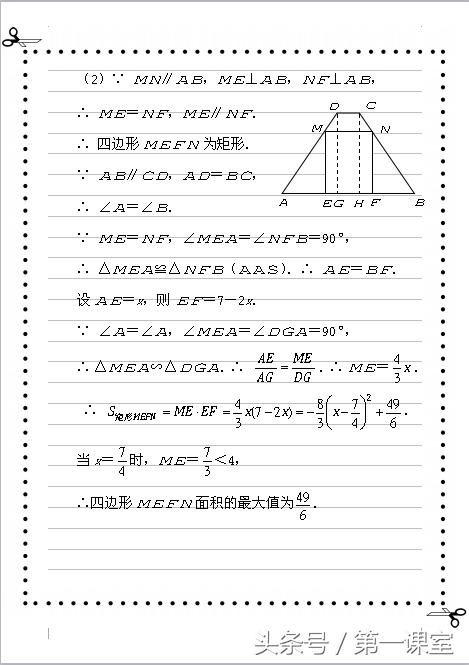 (2) ∵ MN∥AB，ME⊥AB，NF⊥AB，
∴ ME＝NF，ME∥NF．
∴ 四边形MEFN为矩形．
∵ AB∥CD，AD＝BC，
∴ ∠A＝∠B．
∵ ME＝NF，∠MEA＝∠NFB＝90°，
∴ △MEA≌△NFB（AAS）．∴ AE＝BF．
设AE＝x，则 EF＝7－2x．
∵ ∠A＝∠A，∠MEA＝∠DGA＝90°，
∴△MEA∽△DGA．∴ AE/AG＝ME/DG．∴ ME＝4/3 x．
∴ S矩形MEFN＝ME·EF＝4/3 x(7－2x)＝－8/3(x－7/4)²＋49/6．
当x＝7/4时，ME＝7/3＜4，
∴四边形MEFN面积的最大值为49/6．
D C
M N
A E G H F B
头条号 / 第一课室